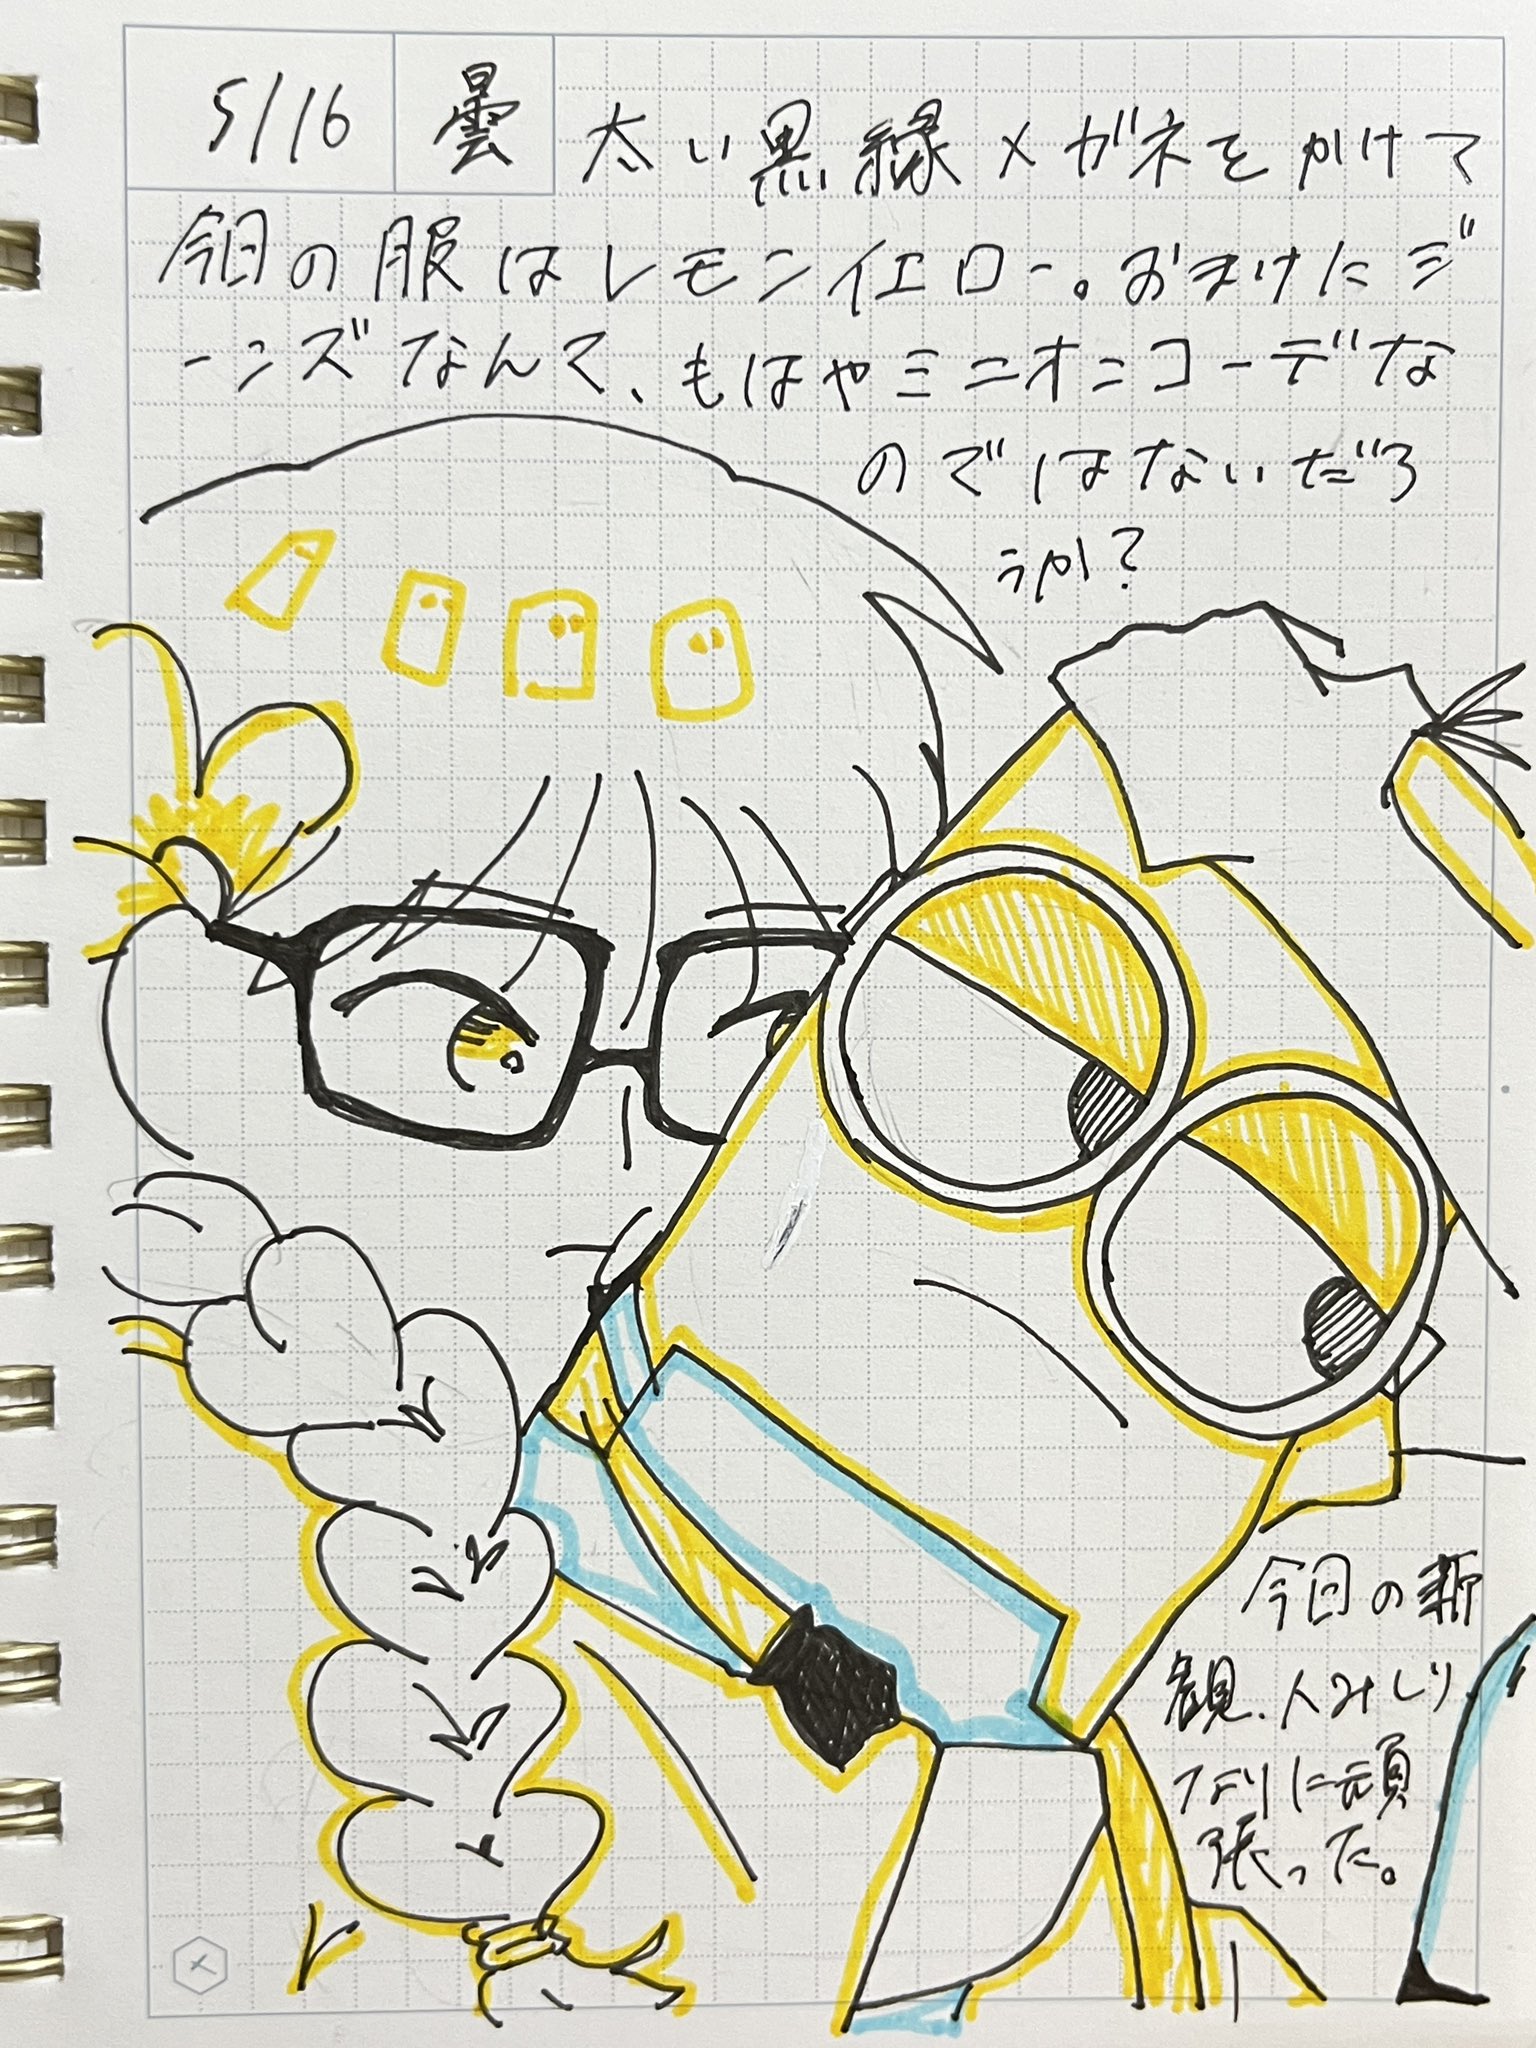 5/16
曇
太い黒縁メガネをかけて
今日の服はレモンイエロー。おまけにジ
ーンズなんて、もはやミニオンコーデな
のではないだろ
うか?
今日の新
観、人みしり
なりに頑
張った。